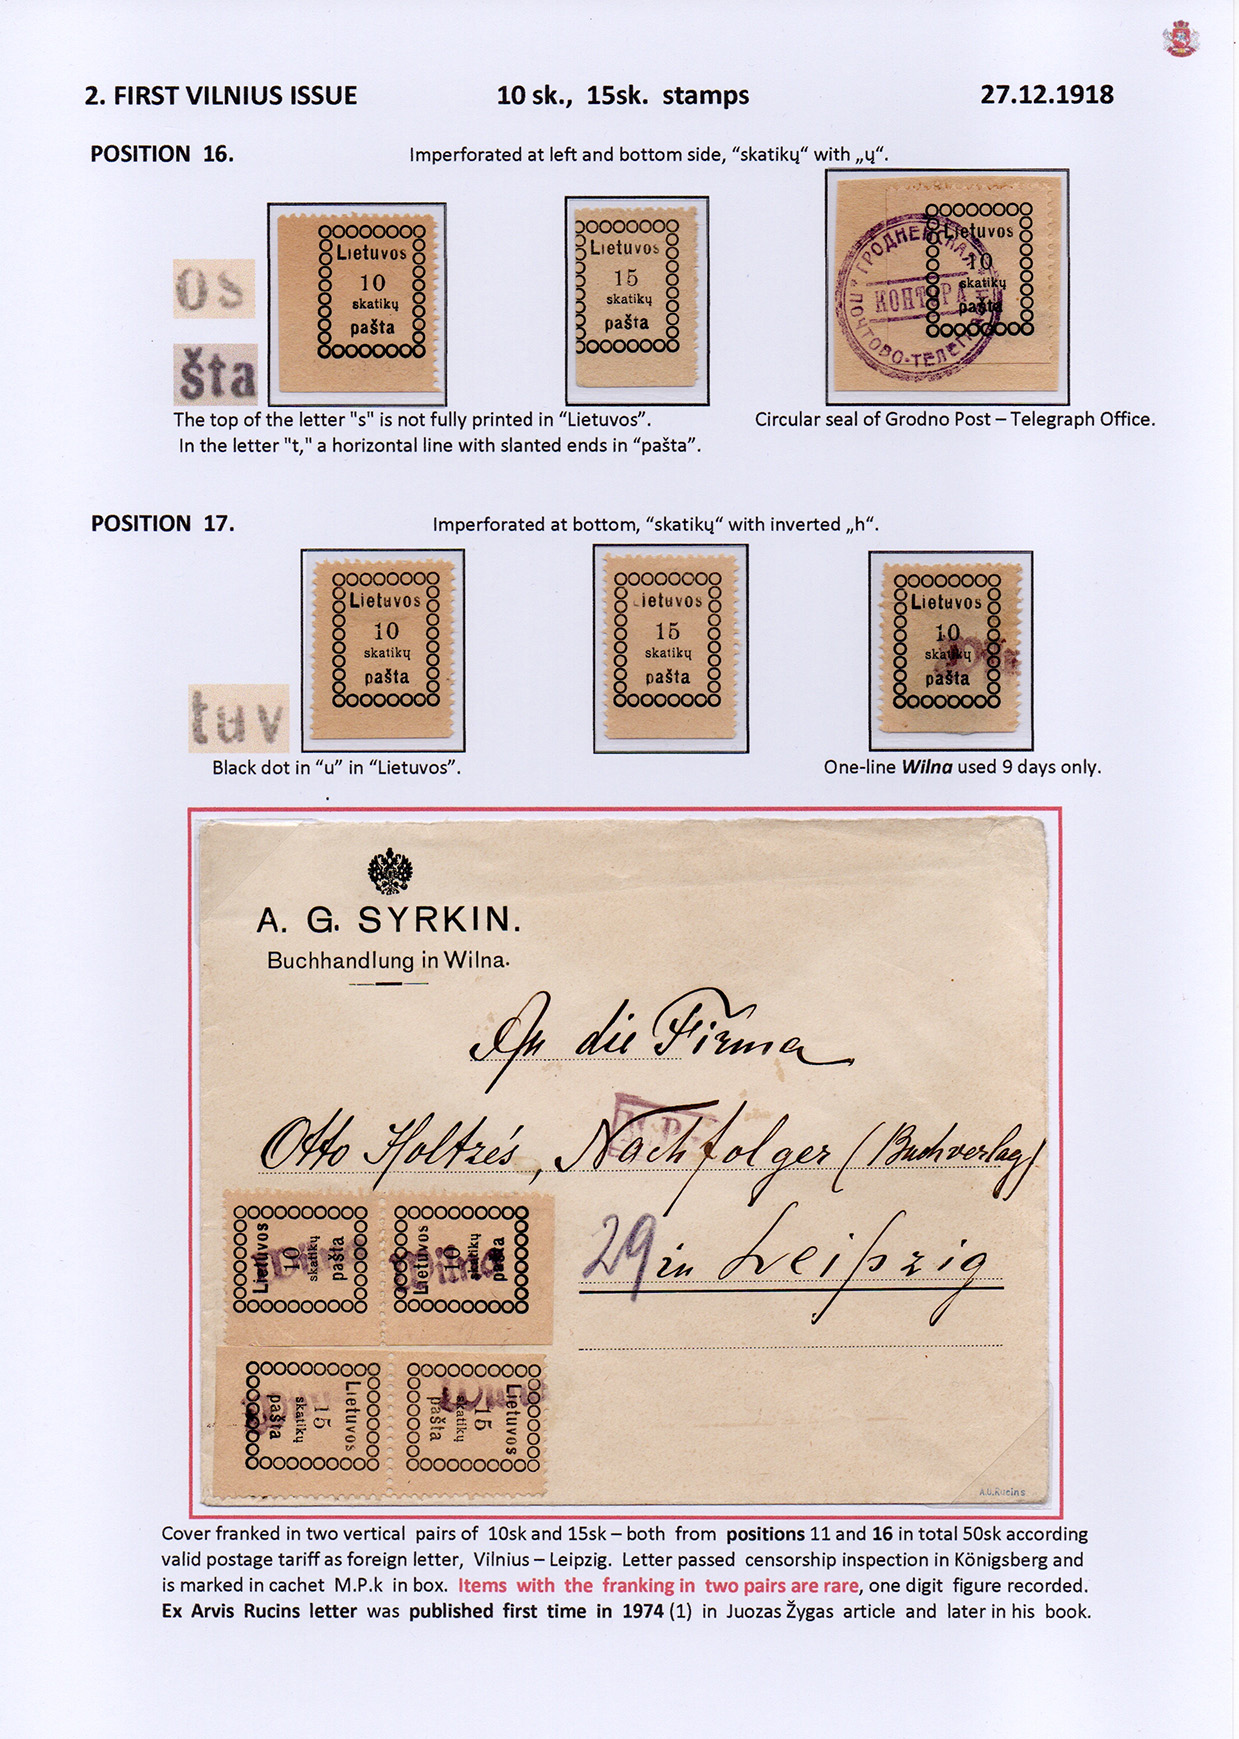 2. FIRST VILNIUS ISSUE 10 sk., 15sk. stamps 27.12.1918
POSITION 16. Imperforated at left and bottom side, “skatikų“ with „ų“.
os
šta
Lietuvos
10
skatikų
pašta
Lietuvos
15
skatikų
pašta
Lietuvos
10
skatikų
pašta
ГРОДНЕНСКАЯ
КОНТОРА
ПОЧТОВО-ТЕЛЕГР
The top of the letter "s" is not fully printed in “Lietuvos”.
In the letter "t," a horizontal line with slanted ends in “pašta”.
Circular seal of Grodno Post – Telegraph Office.
POSITION 17. Imperforated at bottom, “skatikų“ with inverted „h“.
tuv
Lietuvos
10
skatikų
pašta
Lietuvos
15
skatikų
pašta
Lietuvos
10
skatikų
pašta
Black dot in “u” in “Lietuvos”.
One-line Wilna used 9 days only.
A. G. SYRKIN.
Buchhandlung in Wilna.
An die Firma
Otto Holtze's, Nachfolger (Buchverlag)
29 in Leipzig
Lietuvos
10
skatikų
pašta
Lietuvos
10
skatikų
pašta
Wilna
Lietuvos
15
skatikų
pašta
Lietuvos
15
skatikų
pašta
A.U.Rucins
Cover franked in two vertical pairs of 10sk and 15sk – both from positions 11 and 16 in total 50sk according
valid postage tariff as foreign letter, Vilnius – Leipzig. Letter passed censorship inspection in Königsberg and
is marked in cachet M.P.k in box. Items with the franking in two pairs are rare, one digit figure recorded.
Ex Arvis Rucins letter was published first time in 1974 (1) in Juozas Žygas article and later in his book.